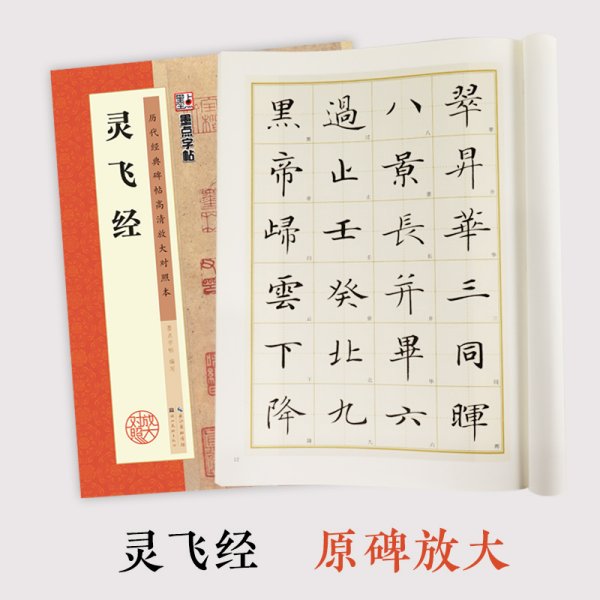 灵飞经
墨点字帖
历代经典碑帖高清放大对照本
墨点字帖 编写
放大对照
翠昇華三同暉
八景長并畢六
過止壬癸北九
黑帝歸雲下降
12
灵飞经 原碑放大